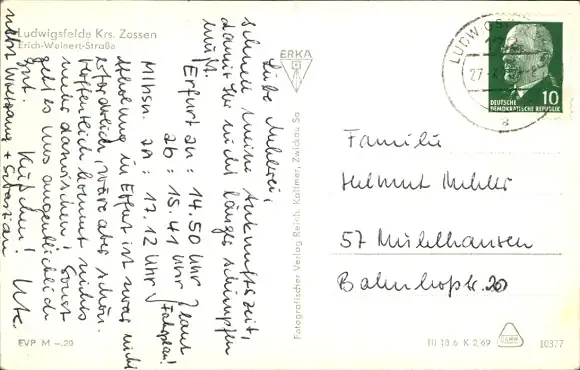 Ludwigsfelde Krs. Zossen
Erich-Weinert-Straße
Liebe Mehlerei,
schnell meine Ankunftszeit,
damit Ihr nicht länger schimpfen
müßt.
Erfurt an: 14.50 Uhr
ab: 15.41 Uhr } laut
Mlhsn. an: 17.12 Uhr } Fahrplan!
Abholung in Erfurt ist zwar nicht
erforderlich, wäre aber schön.
Hoffentlich kommt nichts
mehr dazwischen! Sonst
geht es uns augenblicklich
gut. Küßchen! Ute
nebst Wolfgang + Sebastian
EVP M -.20
ERKA
Fotografischer Verlag Reich. Kallmer, Zwickau Sa
LUDWIGSF
27
a
DEUTSCHE
DEMOKRATISCHE REPUBLIK
10
Familie
Helmut Mehler
57 Mühlhausen
Bahnhofstr. 20
III 18 6 K 2/69
10377